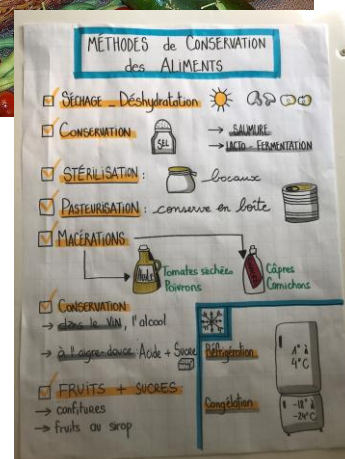 MÉTHODES de CONSERVATION
des ALIMENTS
SÉCHAGE _ Déshydratation
CONSERVATION
SEL
→ SAUMURE
→ LACTO - FERMENTATION
STÉRILISATION : bocaux
PASTEURISATION : conserve en boîte
MACÉRATIONS
Huile
Tomates séchées
Poivrons
Câpres
Cornichons
CONSERVATION
→ dans le VIN, l'alcool
→ à l'aigre-douce: Acide + Sucre
FRUITS + SUCRES
→ confitures
→ fruits au sirop
Réfrigération
1° à
4°C
Congélation
-18° à
-24°C